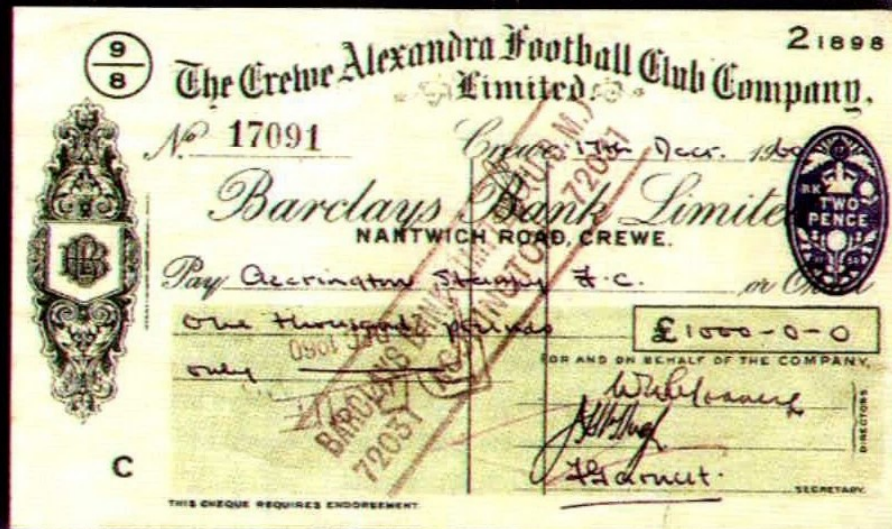 9
8
21898
The Crewe Alexandra Football Club Company,
Limited.
No 17091
Crewe 17th Decr. 1960
Barclays Bank Limite
NANTWICH ROAD, CREWE.
TWO
PENCE
Pay Accrington Stanley F.C. or Order
One thousand pounds
£1000-0-0
only
FOR AND ON BEHALF OF THE COMPANY,
BARCLAYS BANK
ACCRINGTON 72031
72031
DIRECTORS
C
SECRETARY.
THIS CHEQUE REQUIRES ENDORSEMENT.